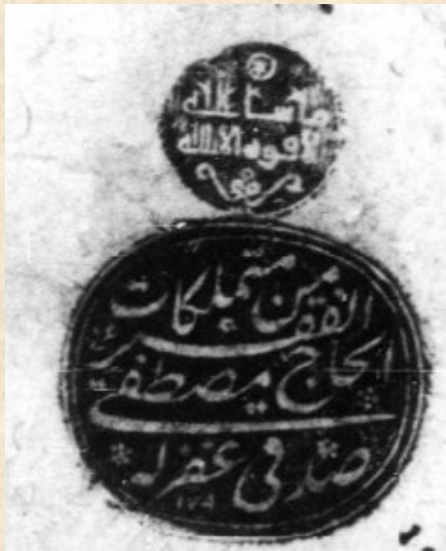 ما شاء الله
لا قوة الا بالله
من متملكات
الفقير
الحاج مصطفى
صدقي غفر له
١٧٩